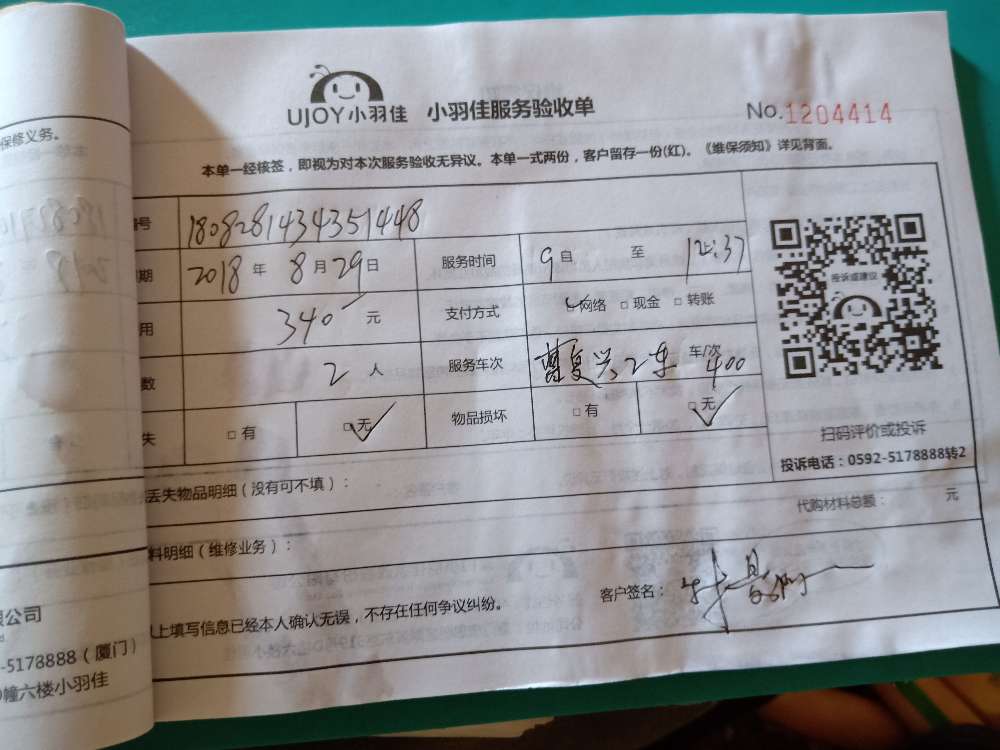 保修义务。
UJOY小羽佳 小羽佳服务验收单 No.1204414
本单一经核签，即视为对本次服务验收无异议。本单一式两份，客户留存一份(红)。《维保须知》详见背面。
号 1808281434351448
期 2018年8月29日 服务时间 9自 至 12:37
用 340元 支付方式 网络 □现金 □转账
数 2人 服务车次 车/次 400
失 □有 □无 物品损坏 □有 □无
投诉或建议
扫码评价或投诉
投诉电话：0592-5178888转2
丢失物品明细（没有可不填）：
代购材料总额： 元
料明细（维修业务）：
客户签名：
上填写信息已经本人确认无误，不存在任何争议纠纷。
限公司
-5178888（厦门）
幢六楼小羽佳